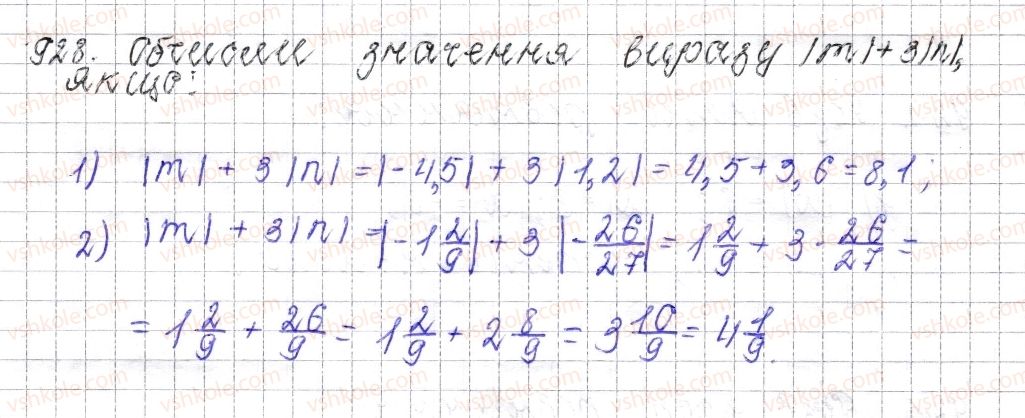 928. Обчисли значення виразу |m|+3|n|,
якщо:
1) |m| + 3|n| = |-4,5| + 3|1,2| = 4,5 + 3,6 = 8,1;
2) |m| + 3|n| = |-1 2/9| + 3|-26/27| = 1 2/9 + 3 · 26/27 =
= 1 2/9 + 26/9 = 1 2/9 + 2 8/9 = 3 10/9 = 4 1/9.